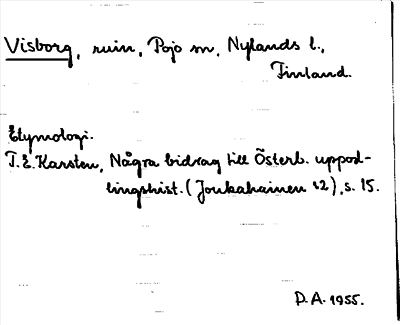 Visborg, ruin, Pojo sn, Nylands l.,
Finland.
Etymologi.
T.E. Karsten, Några bidrag till Österb. uppod-
lingshist. (Joukahainen 12), s. 15.
D.A. 1955.